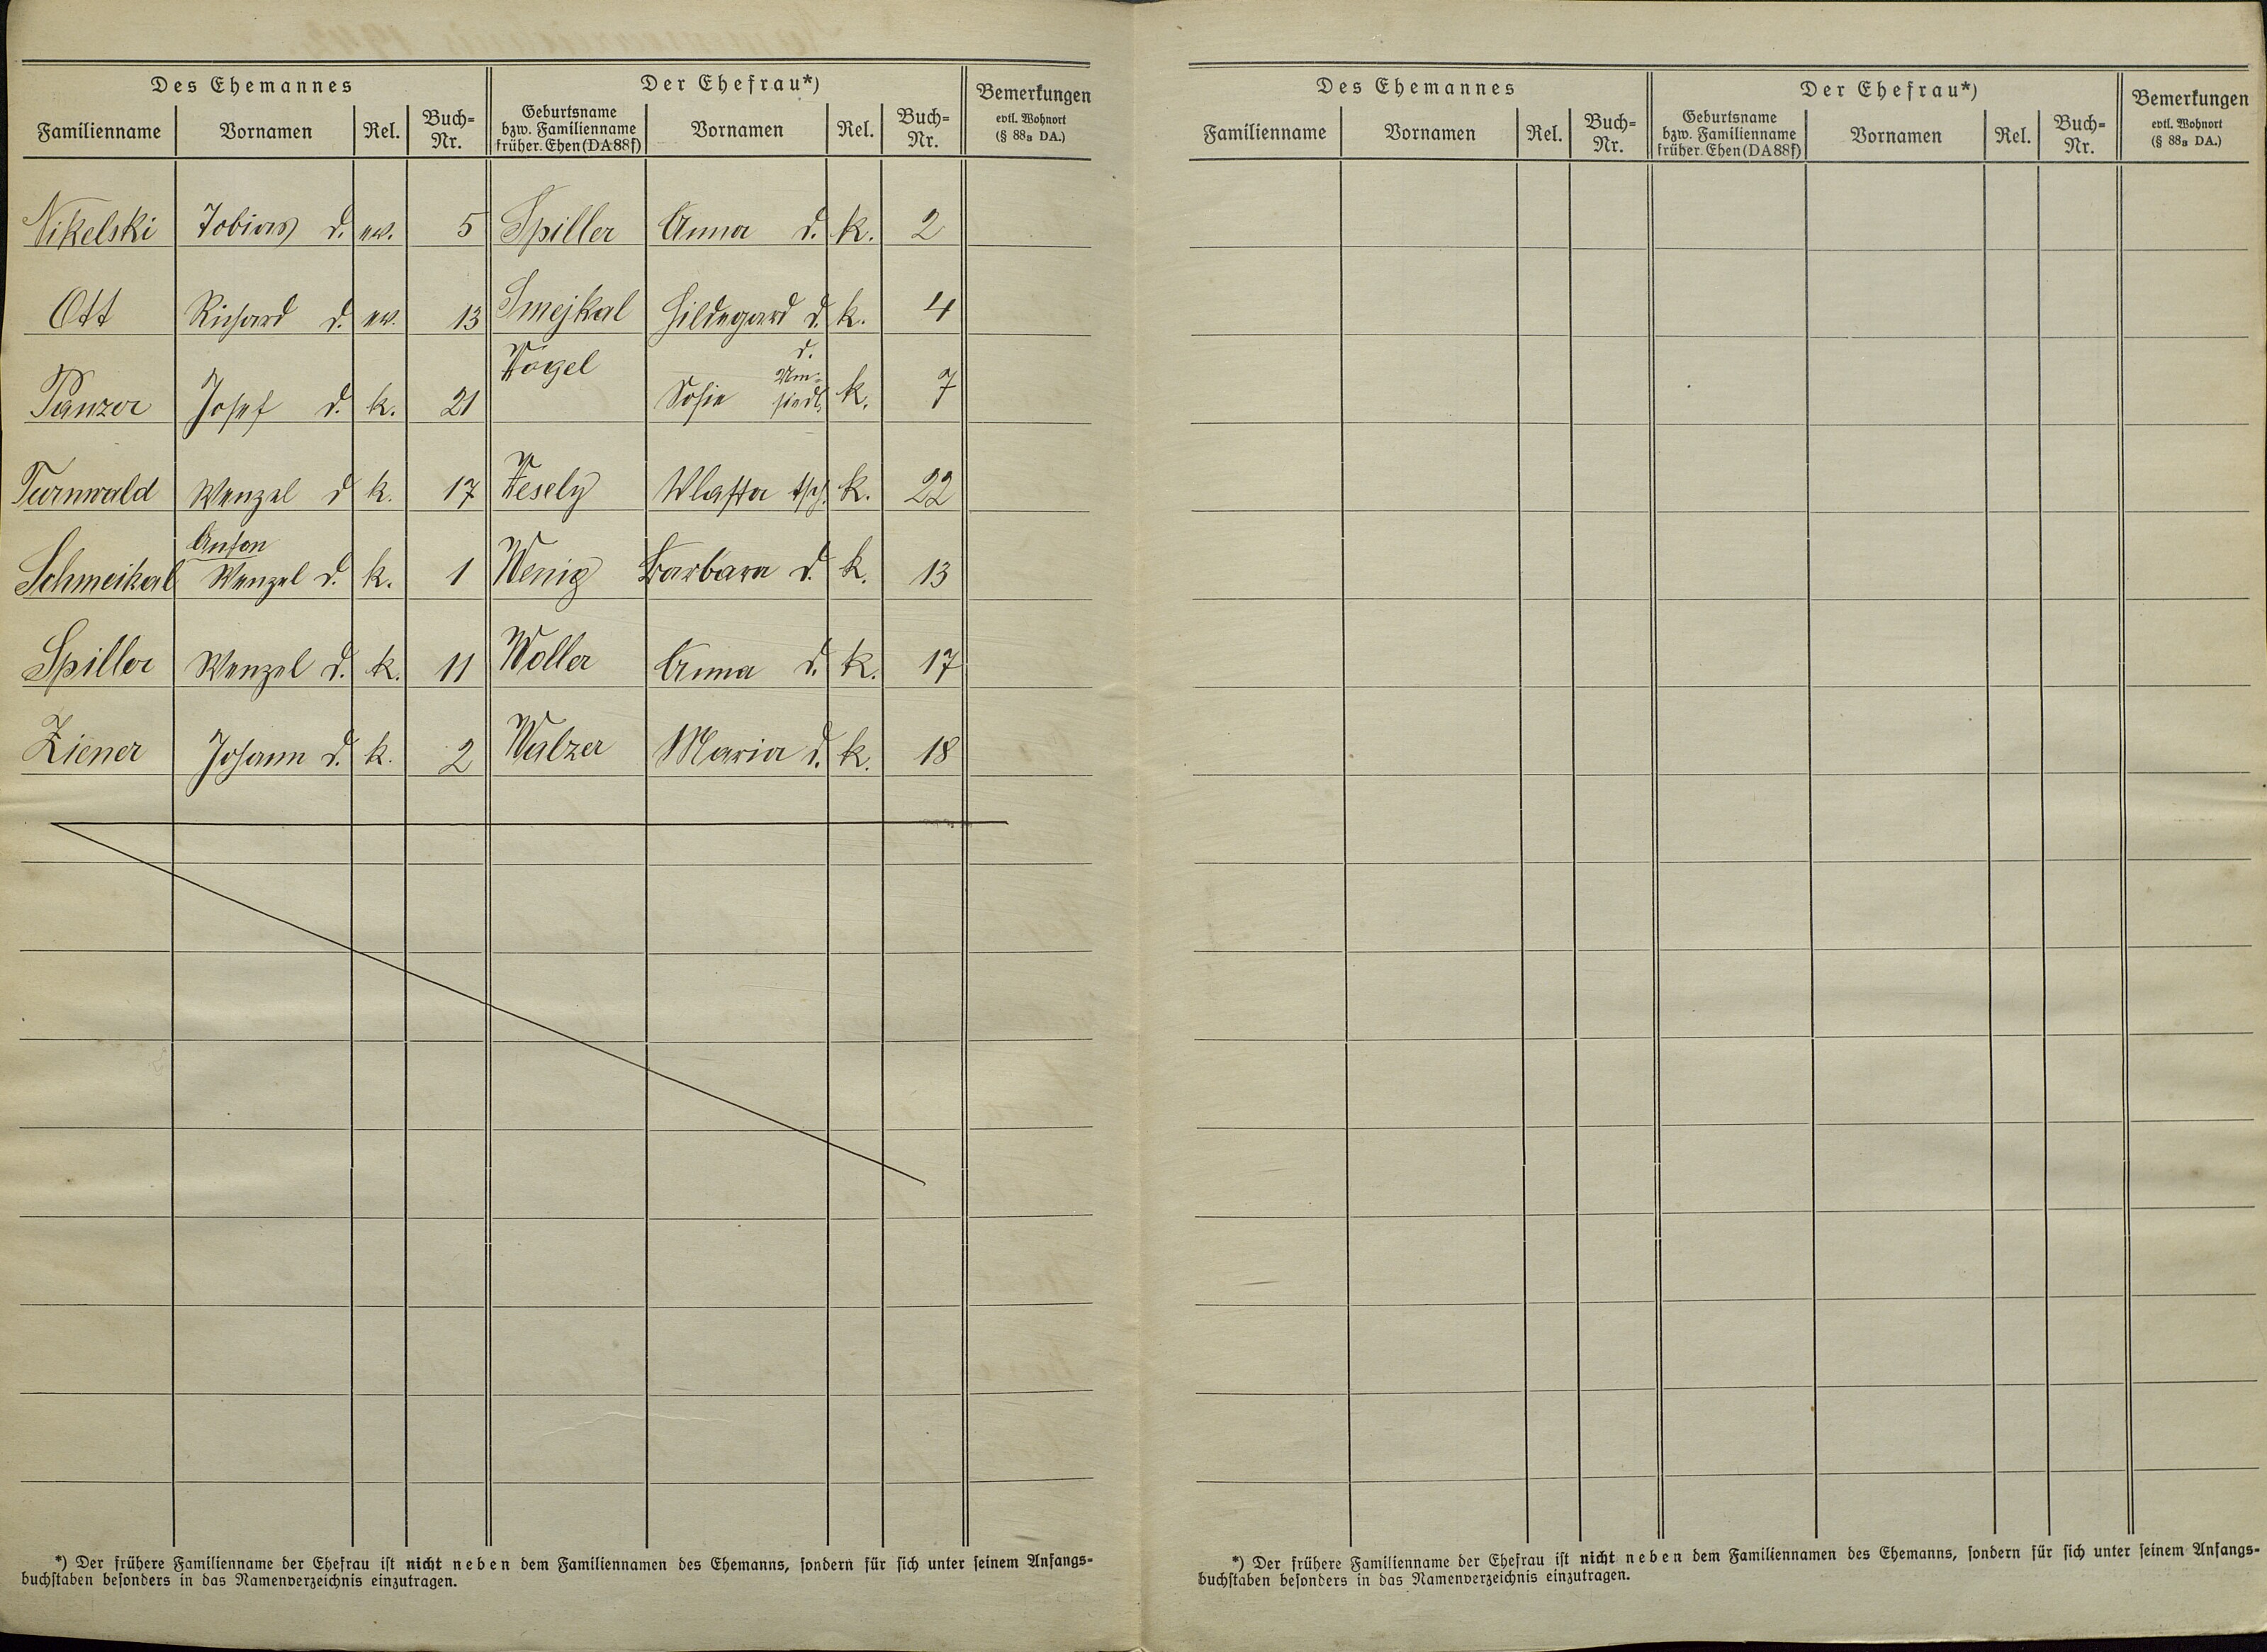 Des Ehemannes Der Ehefrau*) Bemerkungen evtl. Wohnort (§ 88a DA.)
Familienname Vornamen Rel. Buch-Nr. Geburtsname bzw. Familienname früher. Ehen (DA88f) Vornamen Rel. Buch-Nr.
Nikelski Tobias d. ev. 5 Spiller Anna d. k. 2
Ott Richard d. ev. 13 Smejkal Hildegard d. k. 4
Panzer Josef d. k. 21 Vogel Sofie d. Um-siedl. k. 7
Turnwald Wenzel d k. 17 Vesely Wlasta tsch. k. 22
Schmeikal Anton Wenzel d. k. 1 Wenig Barbara d. k. 13
Spiller Wenzel d. k. 11 Woller Anna d. k. 17
Ziener Johann d. k. 2 Walzer Maria d. k. 18
*) Der frühere Familienname der Ehefrau ist nicht neben dem Familiennamen des Ehemanns, sondern für sich unter seinem Anfangs-
buchstaben besonders in das Namenverzeichnis einzutragen.
Des Ehemannes Der Ehefrau*) Bemerkungen evtl. Wohnort (§ 88a DA.)
Familienname Vornamen Rel. Buch-Nr. Geburtsname bzw. Familienname früher. Ehen (DA88f) Vornamen Rel. Buch-Nr.
*) Der frühere Familienname der Ehefrau ist nicht neben dem Familiennamen des Ehemanns, sondern für sich unter seinem Anfangs-
buchstaben besonders in das Namenverzeichnis einzutragen.